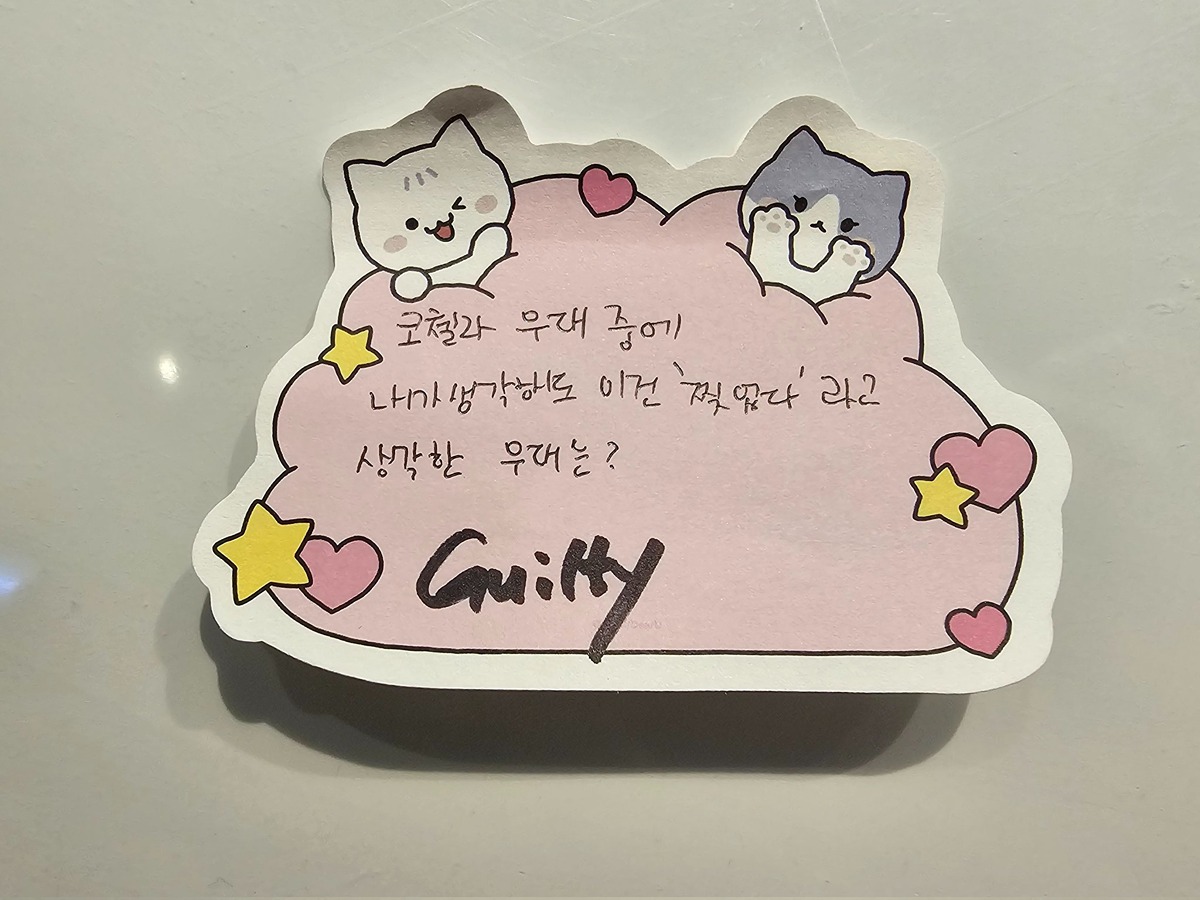 코첼라 무대 중에
내가 생각해도 이건 '찢었다' 라고
생각한 무대는?
Guilty